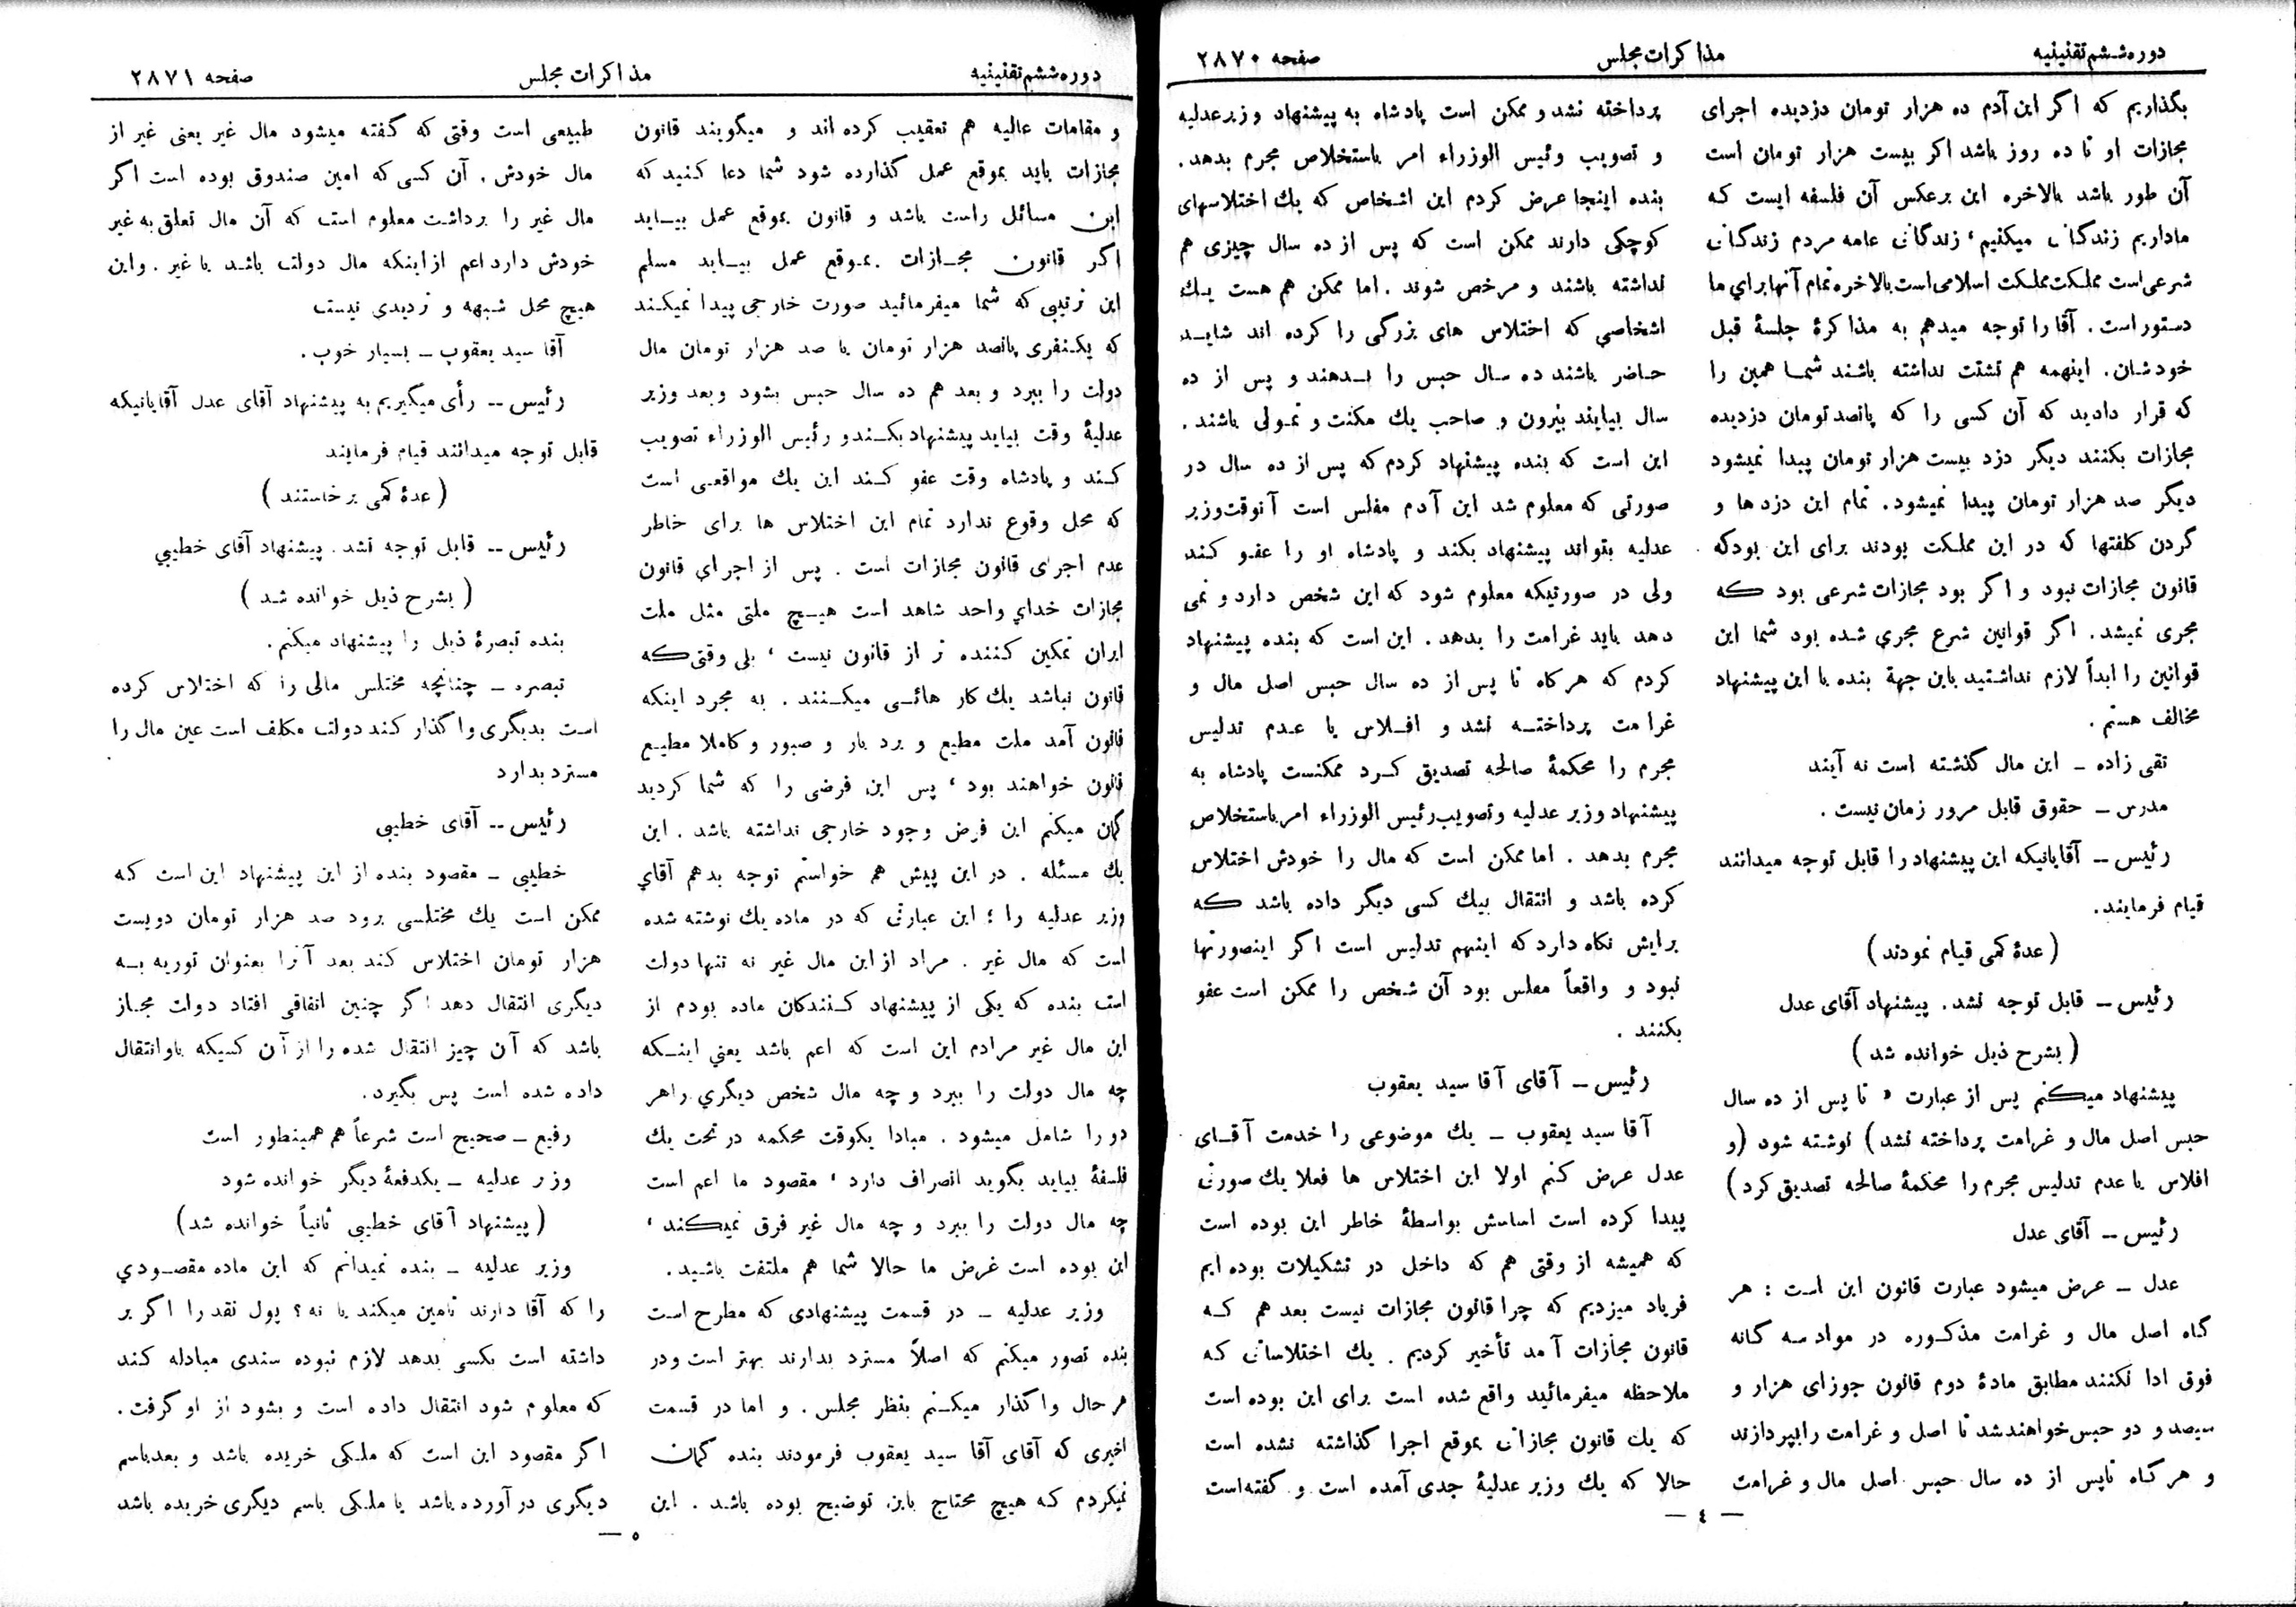 دوره ششم تقنینیه
مذاکرات مجلس
صفحه ۲۸۷۰
بگذاریم که اگر این آدم ده هزار تومان دزدیده اجرای
مجازات او تا ده روز باشد اگر بیست هزار تومان است
آن طور باشد بالاخره این برعکس آن فلسفه ایست که
ماداریم زندگانی میکنیم، زندگانی عامه مردم زندگانی
شرعی است مملکت مملکت اسلامی است بالاخره تمام آنها برای ما
دستور است. آقا را توجه میدهم به مذاکرهٔ جلسهٔ قبل
خودشان. اینهمه هم تشتت نداشته باشند شما همین را
که قرار دادید که آن کسی را که پانصد تومان دزدیده
مجازات بکنند دیگر دزد بیست هزار تومان پیدا نمیشود
دیگر صد هزار تومان پیدا نمیشود. تمام این دزد ها و
گردن کلفتها که در این مملکت بودند برای این بود که
قانون مجازات نبود و اگر بود مجازات شرعی بود که
مجری نمیشد. اگر قوانین شرع مجری شده بود شما این
قوانین را ابداً لازم نداشتید باین جهة بنده با این پیشنهاد
مخالف هستم.
تقی زاده ـ این مال گذشته است نه آیند
مدرس ـ حقوق قابل مرور زمان نیست.
رئیس ـ آقایانیکه این پیشنهاد را قابل توجه میدانند
قیام فرمایند.
(عدهٔ کمی قیام نمودند)
رئیس ـ قابل توجه نشد. پیشنهاد آقای عدل
(بشرح ذیل خوانده شد)
پیشنهاد میکنم پس از عبارت « تا پس از ده سال
حبس اصل مال و غرامت پرداخته نشد) نوشته شود (و
افلاس یا عدم تدلیس مجرم را محکمهٔ صالحه تصدیق کرد)
رئیس ـ آقای عدل
عدل ـ عرض میشود عبارت قانون این است : هر
گاه اصل مال و غرامت مذکوره در مواد سه گانه
فوق ادا نکنند مطابق مادهٔ دوم قانون جوزای هزار و
سیصد و دو حبس خواهند شد تا اصل و غرامت را بپردازند
و هر گاه تا پس از ده سال حبس اصل مال و غرامت
پرداخته نشد و ممکن است پادشاه به پیشنهاد وزیر عدلیه
و تصویب رئیس الوزراء امر باستخلاص مجرم بدهد.
بنده اینجا عرض کردم این اشخاص که یك اختلاسهای
کوچکی دارند ممکن است که پس از ده سال چیزی هم
نداشته باشند و مرخص شوند. اما ممکن هم هست یك
اشخاصی که اختلاس های بزرگی را کرده اند شاید
حاضر باشند ده سال حبس را بدهند و پس از ده
سال بیایند بیرون و صاحب یك مکنت و تمولی باشند.
این است که بنده پیشنهاد کردم که پس از ده سال در
صورتی که معلوم شد این آدم مفلس است آنوقت وزیر
عدلیه بتواند پیشنهاد بکند و پادشاه او را عفو کند
ولی در صورتیکه معلوم شود که این شخص دارد و نمی
دهد باید غرامت را بدهد. این است که بنده پیشنهاد
کردم که هر کاه تا پس از ده سال حبس اصل مال و
غرامت پرداخته نشد و افلاس یا عدم تدلیس
مجرم را محکمهٔ صالحه تصدیق کرد ممکنست پادشاه به
پیشنهاد وزیر عدلیه و تصویب رئیس الوزراء امر باستخلاص
مجرم بدهد. اما ممکن است که مال را خودش اختلاس
کرده باشد و انتقال بیك کسی دیگر داده باشد که
برایش نکاه دارد که اینهم تدلیس است اگر اینصورتها
نبود و واقعاً مفلس بود آن شخص را ممکن است عفو
بکنند.
رئیس ـ آقای آقا سید یعقوب
آقا سید یعقوب ـ یك موضوعی را خدمت آقای
عدل عرض کنم اولا این اختلاس ها فعلا یك صورتی
پیدا کرده است اساسش بواسطهٔ خاطر این بوده است
که همیشه از وقتی هم که داخل در تشکیلات بوده ایم
فریاد میزدیم که چرا قانون مجازات نیست بعد هم که
قانون مجازات آمد تأخیر کردیم. یك اختلاساتی که
ملاحظه میفرمائید واقع شده است برای این بوده است
که یك قانون مجازاتی بموقع اجرا گذاشته نشده است
حالا که یك وزیر عدلیهٔ جدی آمده است و گفته است
— ٤ —
دوره ششم تقنینیه
مذاکرات مجلس
صفحه ۲۸۷۱
و مقامات عالیه هم تعقیب کرده اند و میگویند قانون
مجازات باید بموقع عمل گذارده شود شما دعا کنید که
این مسائل راست باشد و قانون بموقع عمل بیاید
اگر قانون مجازات بموقع عمل بیاید مسلم
این ترتیبی که شما میفرمائید صورت خارجی پیدا نمیکند
که یکنفری پانصد هزار تومان یا صد هزار تومان مال
دولت را ببرد و بعد هم ده سال حبس بشود و بعد وزیر
عدلیهٔ وقت بیاید پیشنهاد بکند و رئیس الوزراء تصویب
کند و پادشاه وقت عفو کند این یك مواقعی است
که محل وقوع ندارد تمام این اختلاس ها برای خاطر
عدم اجرای قانون مجازات است. پس از اجرای قانون
مجازات خدای واحد شاهد است هیچ ملتی مثل ملت
ایران تمکین کننده تر از قانون نیست، بلی وقتی که
قانون نباشد یك کار هائی میکنند. به مجرد اینکه
قانون آمد ملت مطیع و برد بار و صبور و کاملا مطیع
قانون خواهند بود، پس این فرضی را که شما کردید
گمان میکنم این فرض وجود خارجی نداشته باشد. این
یك مسئله. در این پیش هم خواستم توجه بدهم آقای
وزیر عدلیه را ؛ این عبارتی که در ماده یك نوشته شده
است که مال غیر. مراد از این مال غیر نه تنها دولت
است بنده که یکی از پیشنهاد کنندکان ماده بودم از
این مال غیر مرادم این است که اعم باشد یعنی اینکه
چه مال دولت را ببرد و چه مال شخص دیگری را هر
دو را شامل میشود. مبادا یکوقت محکمه در تحت یك
فلسفهٔ بیاید بگوید انصراف دارد، مقصود ما اعم است
چه مال دولت را ببرد و چه مال غیر فرق نمیکند،
این بوده است غرض ما حالا شما هم ملتفت باشید.
وزیر عدلیه ـ در قسمت پیشنهادی که مطرح است
بنده تصور میکنم که اصلاً مسترد بدارند بهتر است و در
هر حال واگذار میکنم بنظر مجلس. و اما در قسمت
اخیری که آقای آقا سید یعقوب فرمودند بنده گمان
نمیکردم که هیچ محتاج باین توضیح بوده باشد. این
طبیعی است وقتی که گفته میشود مال غیر یعنی غیر از
مال خودش. آن کسی که امین صندوق بوده است اگر
مال غیر را برداشت معلوم است که آن مال تعلق به غیر
خودش دارد اعم از اینکه مال دولت باشد یا غیر. و این
هیچ محل شبهه و تردیدی نیست
آقا سید یعقوب ـ بسیار خوب.
رئیس ـ رأی میگیریم به پیشنهاد آقای عدل آقایانیکه
قابل توجه میدانند قیام فرمایند
(عدهٔ کمی برخاستند)
رئیس ـ قابل توجه نشد. پیشنهاد آقای خطیبی
(بشرح ذیل خوانده شد)
بنده تبصرهٔ ذیل را پیشنهاد میکنم.
تبصره ـ چنانچه مختلس مالی را که اختلاس کرده
است بدیگری واگذار کند دولت مکلف است عین مال را
مسترد بدارد
رئیس ـ آقای خطیبی
خطیبی ـ مقصود بنده از این پیشنهاد این است که
ممکن است یك مختلسی برود صد هزار تومان دویست
هزار تومان اختلاس کند بعد آنرا بعنوان توریه به
دیگری انتقال دهد اگر چنین اتفاقی افتاد دولت مجاز
باشد که آن چیز انتقال شده را از آن کسیکه باو انتقال
داده شده است پس بگیرد.
رفیع ـ صحیح است شرعاً هم همینطور است
وزیر عدلیه ـ یکدفعهٔ دیگر خوانده شود
(پیشنهاد آقای خطیبی ثانیاً خوانده شد)
وزیر عدلیه ـ بنده نمیدانم که این ماده مقصودی
را که آقا دارند تامین میکند یا نه ؟ پول نقد را اگر بر
داشته است بکسی بدهد لازم نبوده سندی مبادله کند
که معلوم شود انتقال داده است و بشود از او گرفت.
اگر مقصود این است که ملکی خریده باشد و بعد باسم
دیگری در آورده باشد یا ملکی باسم دیگری خریده باشد
— ٥